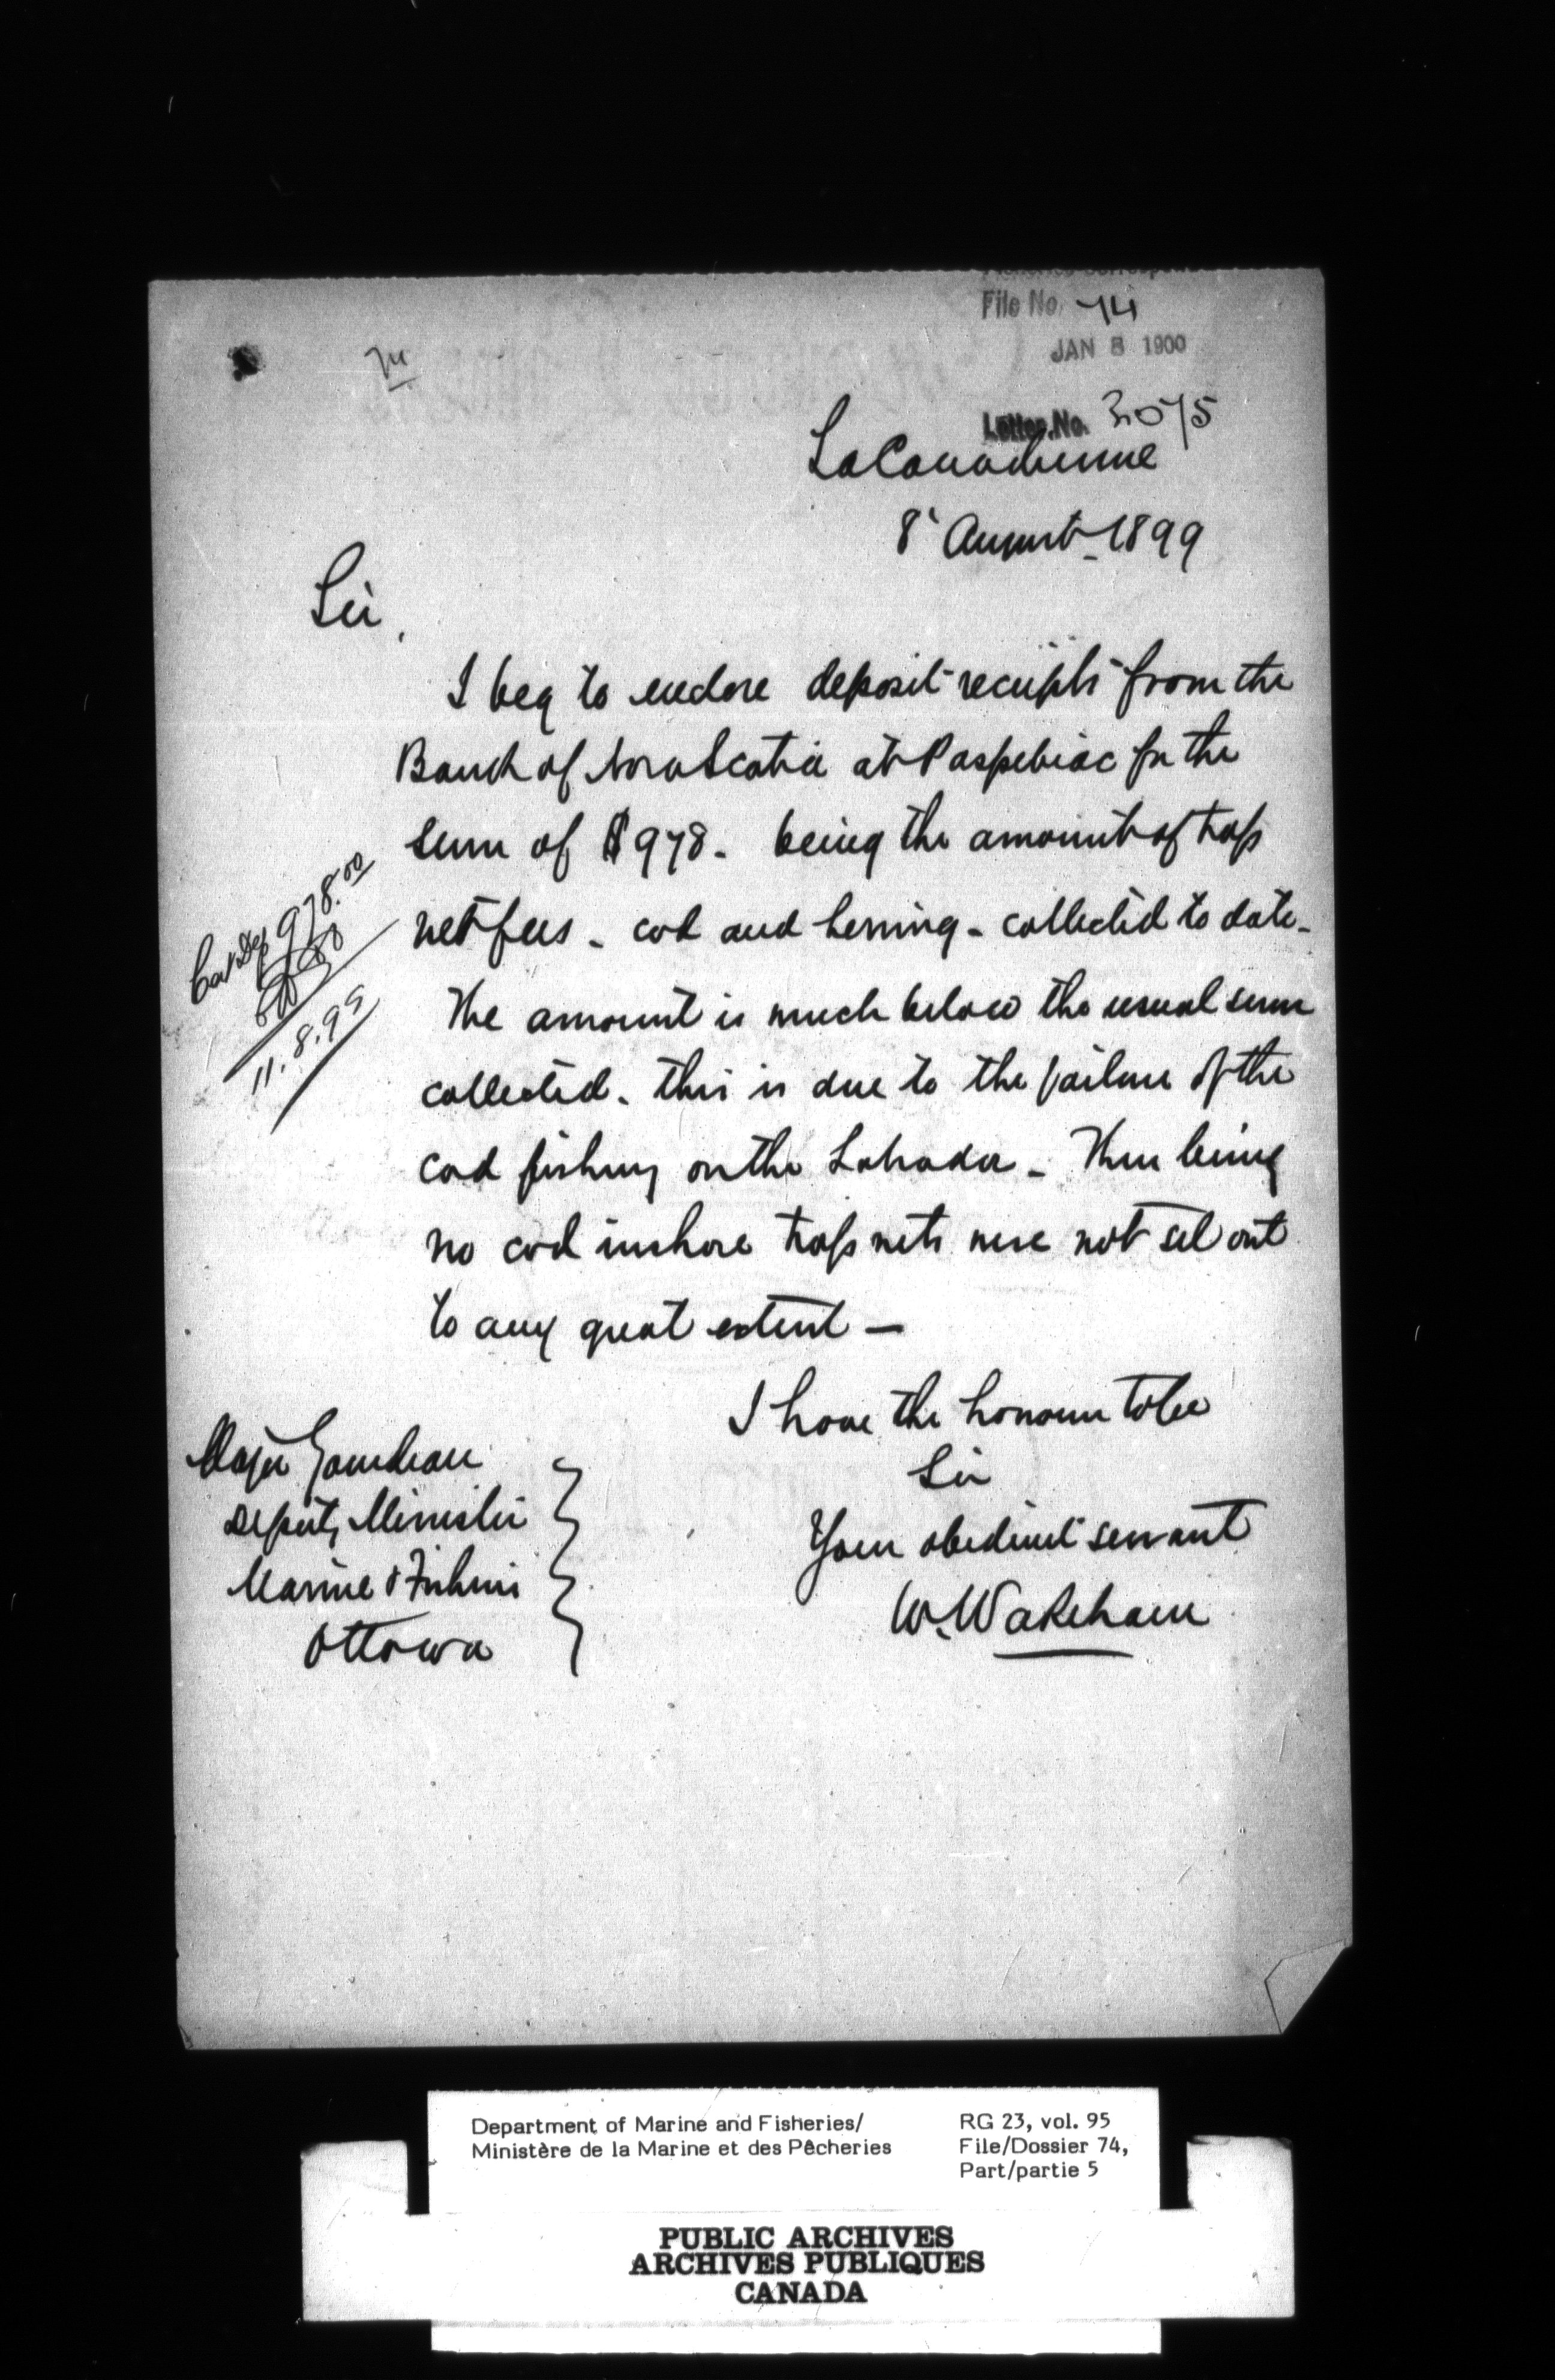 File No. 74
JAN 8 1900
74
Letter No. 3075
La Canadienne
8' August - 1899
Sir,
I beg to enclose deposit receipts from the
Bank of Nova Scotia at Paspebiac for the
sum of $978. being the amount of trap
net fees - cod and herring - collected to date -
The amount is much below the usual sum
collected. this is due to the failure of the
cod fishing on the Labrador - There being
no cod inshore trap nets were not set out
to any great extent —
I have the honour to be
Sir
Your obedient servant
W. Wakeham
Major Gourdeau
Deputy Minister
Marine & Fisheries
Ottawa
978.00
11.8.99
Department of Marine and Fisheries/
Ministère de la Marine et des Pêcheries
RG 23, vol. 95
File/Dossier 74,
Part/partie 5
PUBLIC ARCHIVES
ARCHIVES PUBLIQUES
CANADA